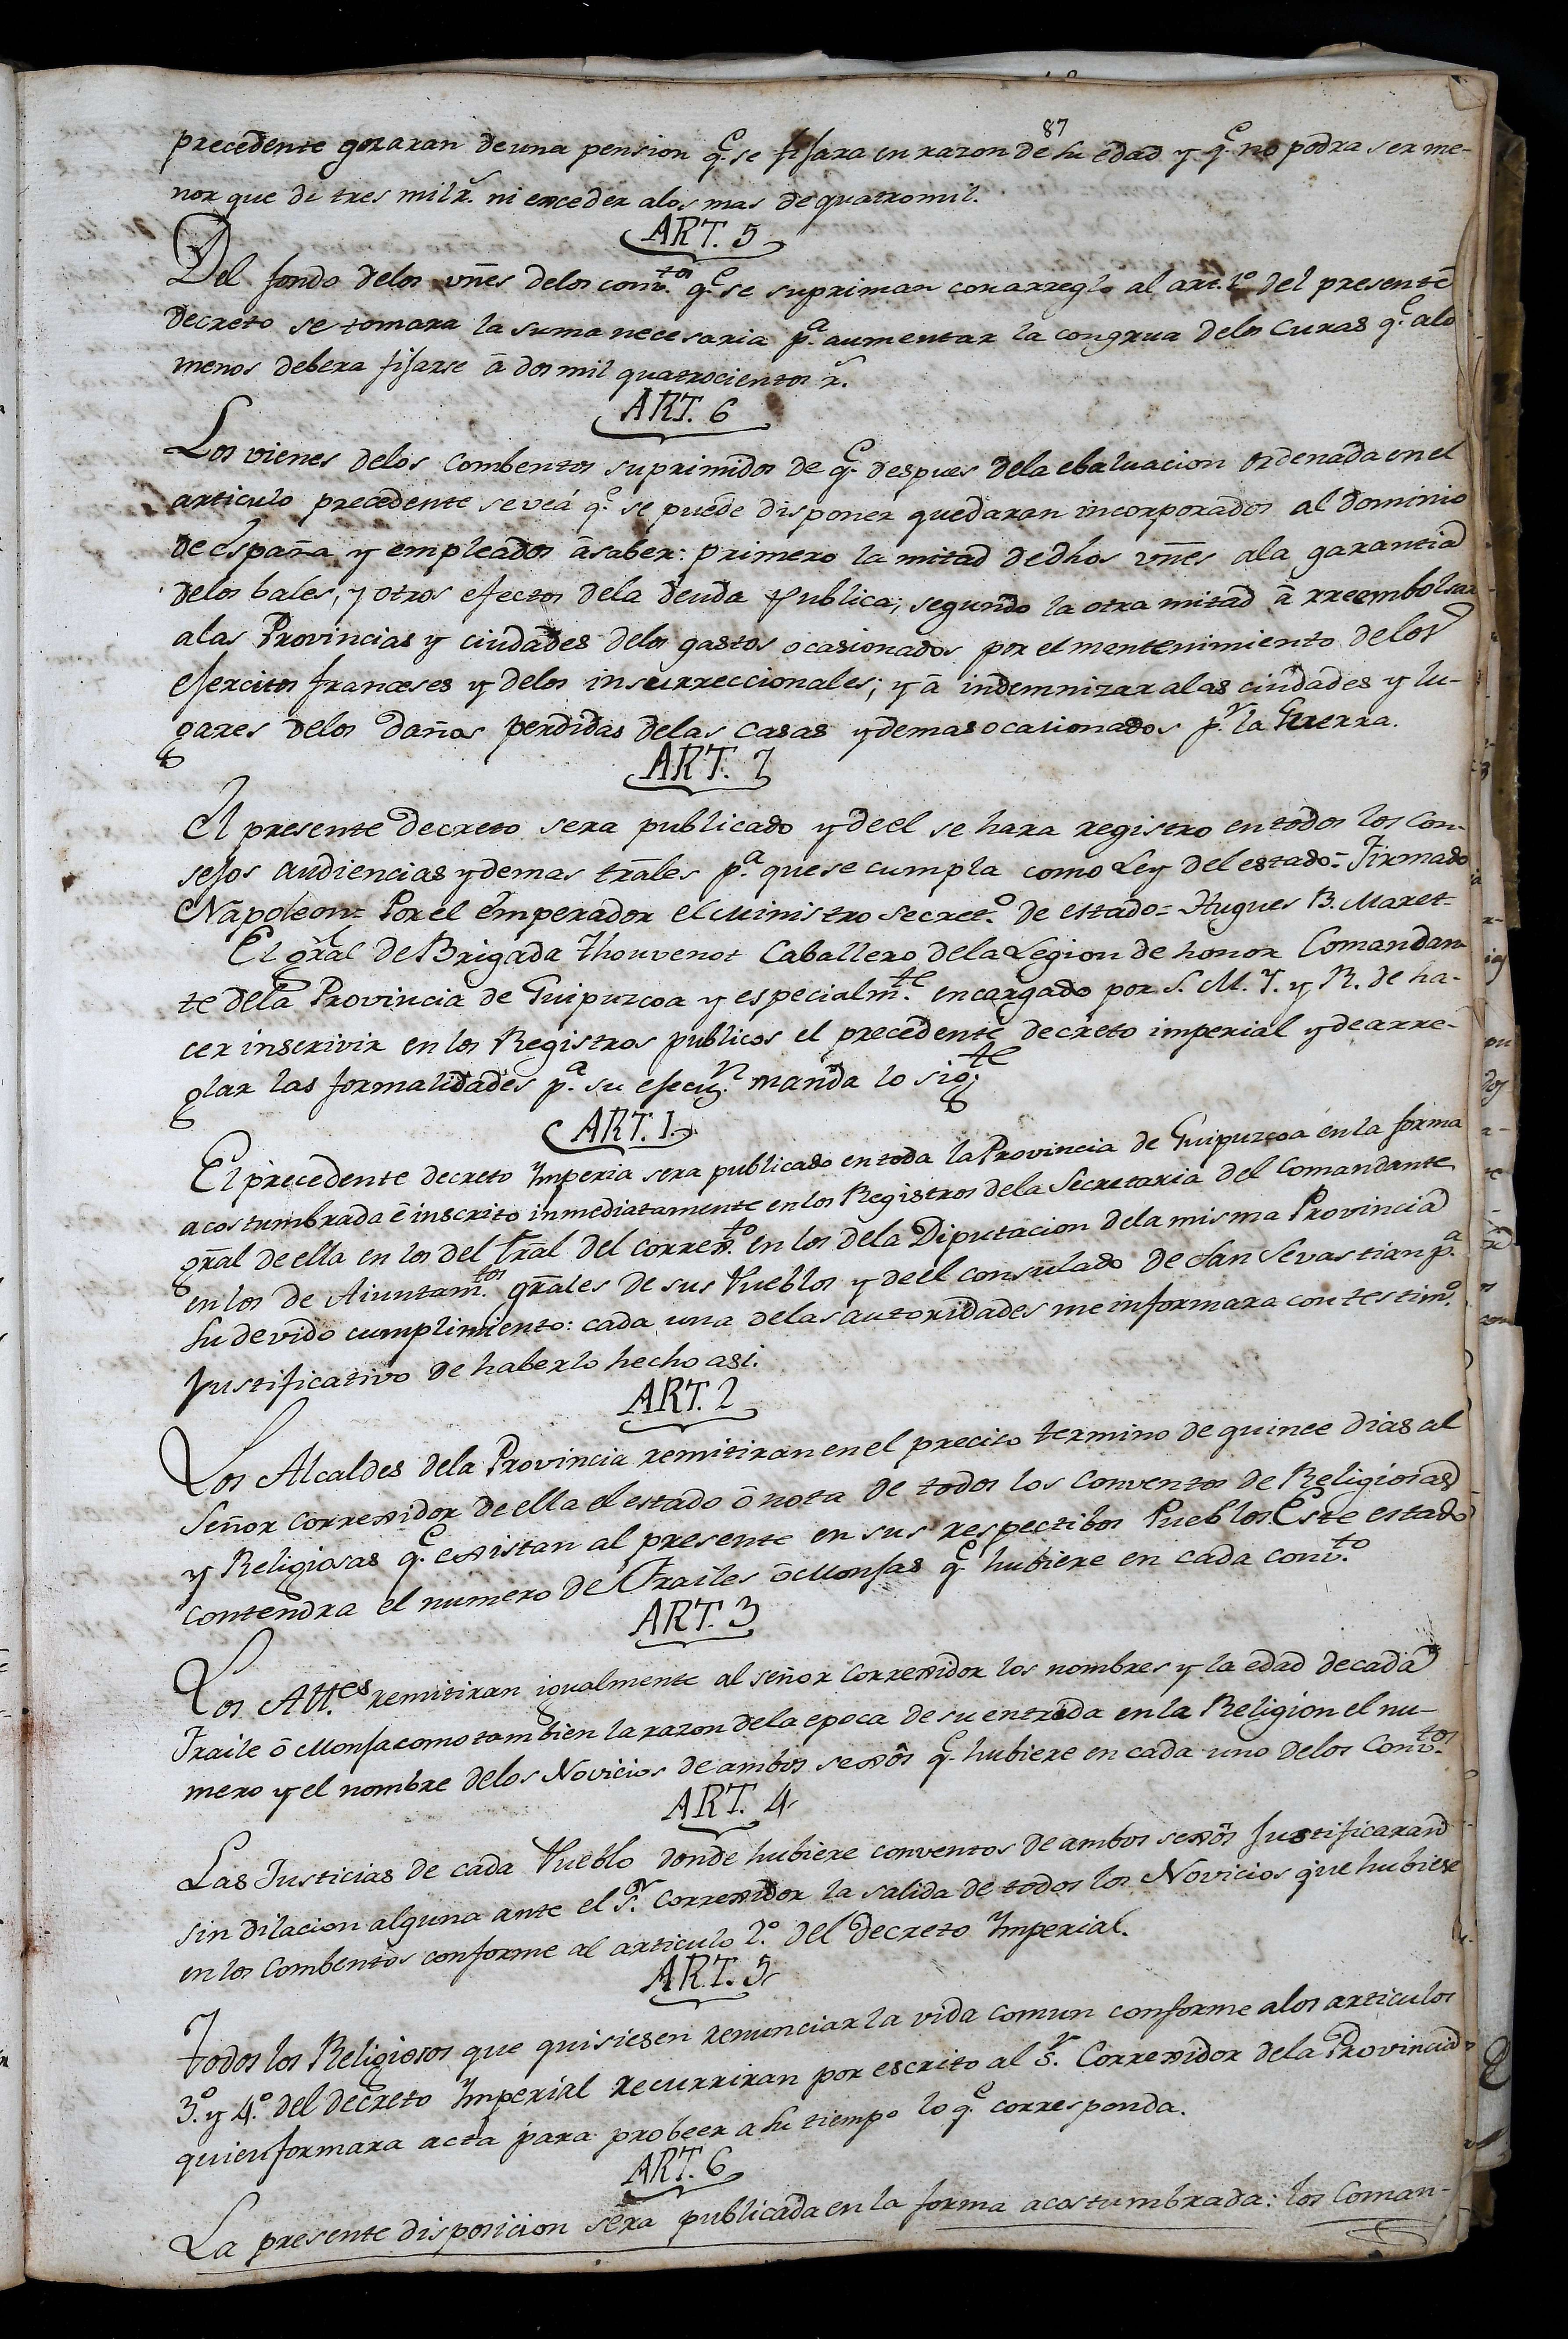 87
precedente gozaran de una pension q.e se fijara en razon de su edad y q.e no podra ser me-
nor que de tres mil r.s ni exceder alos mas de quatromil.
ART. 5
Del fondo delos vn̄es delos conv.tos q.e se supriman con arreglo al art. 1.o del presente
decreto se tomara la suma necesaria p.a aumentar la congrua delos Curas q.e alo
menos debera fijarse ā dos mil quatrocientos r.s
ART. 6
Los vienes delos Combentos suprimidos de q.e despues dela ebaluacion ordenada en el
articulo precedente se veá q.e se puede disponer quedaran incorporados al dominio
de España y empleados ā saber: primero la mitad de dhos vn̄es ala garantia
delos bales, y otros efectos dela deuda publica; segundo la otra mitad ā rreembolsar
alas Provincias y ciudades delos gastos ocasionados por el mantenimiento delos
ejercitos franceses y delos insurreccionales; y ā indemnizar alas ciudades y lu-
gares delos daños perdidas delas casas y demas ocasionados p.r la Guerra.
ART. 7
El presente decreto sera publicado y de el se hara registro en todos los con-
sejos audiencias y demas trāles p.a que se cumpla como Ley del estado = Firmado
Napoleon = Por el emperador el Ministro secret.o de estado = Hugues B. Maret =
El gr̄al de Brigada Thouvenot Caballero dela Legion de honor Comandan-
te dela Provincia de Guipuzcoa y especialm.te encargado por S. M. Y. y R. de ha-
cer inscrivir en los Registros publicos el precedente decreto imperial y de arre-
glar las formalidades p.a su ejecu.n manda lo sig.te
ART. 1.
El precedente decreto Imperia sera publicado en toda la Provincia de Guipuzcoa en la forma
acostumbrada ē inscrito inmediatamente en los Registros dela Secretaria del Comandante
gr̄al de ella en los del Trāl del correx.to en los dela Diputacion dela misma Provincia
en los de Aiuntam.tos gr̄ales de sus Pueblos y de el consulado de San Sevastian p.a
su devido cumplimiento: cada una delas autoridades me informara con testim.o
justificativo de haberlo hecho asi.
ART. 2
Los Alcaldes dela Provincia remitiran en el preciso termino de quince dias al
Señor correxidor de ella el estado ō nota de todos los conventos de Religiosas
y Religiosas q.e existan al presente en sus respectibos Pueblos. Este estado
contendra el numero de Frailes ō Monjas q.e hubiere en cada conv.to
ART. 3
Los Att.es remitiran igualmente al señor correxidor los nombres y la edad de cada
Fraile ō Monja como tambien la razon dela epoca de su entrada en la Religion el nu-
mero y el nombre delos Novicios de ambos sexôs q.e hubiere en cada uno delos conv.tos
ART. 4
Las Justicias de cada Pueblo donde hubiere conventos de ambos sexôs justificaran
sin dilacion alguna ante el s.r correxidor la salida de todos los Novicios que hubiese
en los Combentos conforme al articulo 2.o del decreto Imperial.
ART. 5
Todos los Religiosos que quisiesen renunciar la vida comun conforme alos articulos
3.o y 4.o del decreto Imperial recurriran por escrito al s.r Correxidor dela Provincia
quien formara acta para probeer a su tiempo lo q.e corresponda.
ART. 6
La presente disposicion sera publicada en la forma acostumbrada: los Coman-